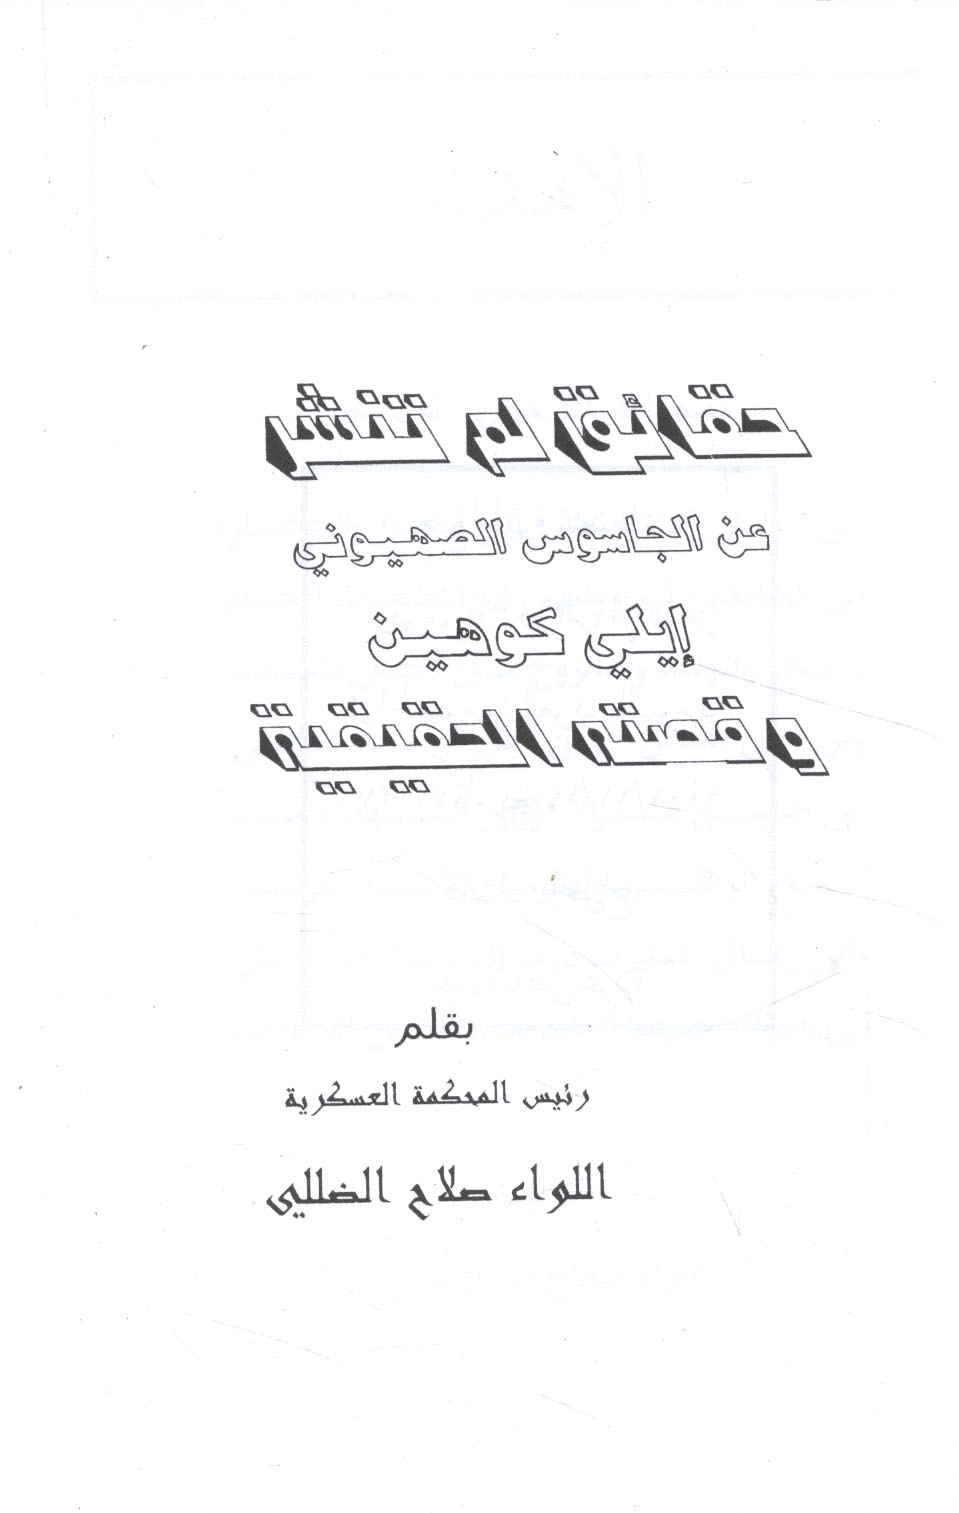 حقائق لم تنشر
عن الجاسوس الصهيوني
إيلي كوهين
وقصته الحقيقية
بقلم
رئيس المحكمة العسكرية
اللواء صلاح الضللي